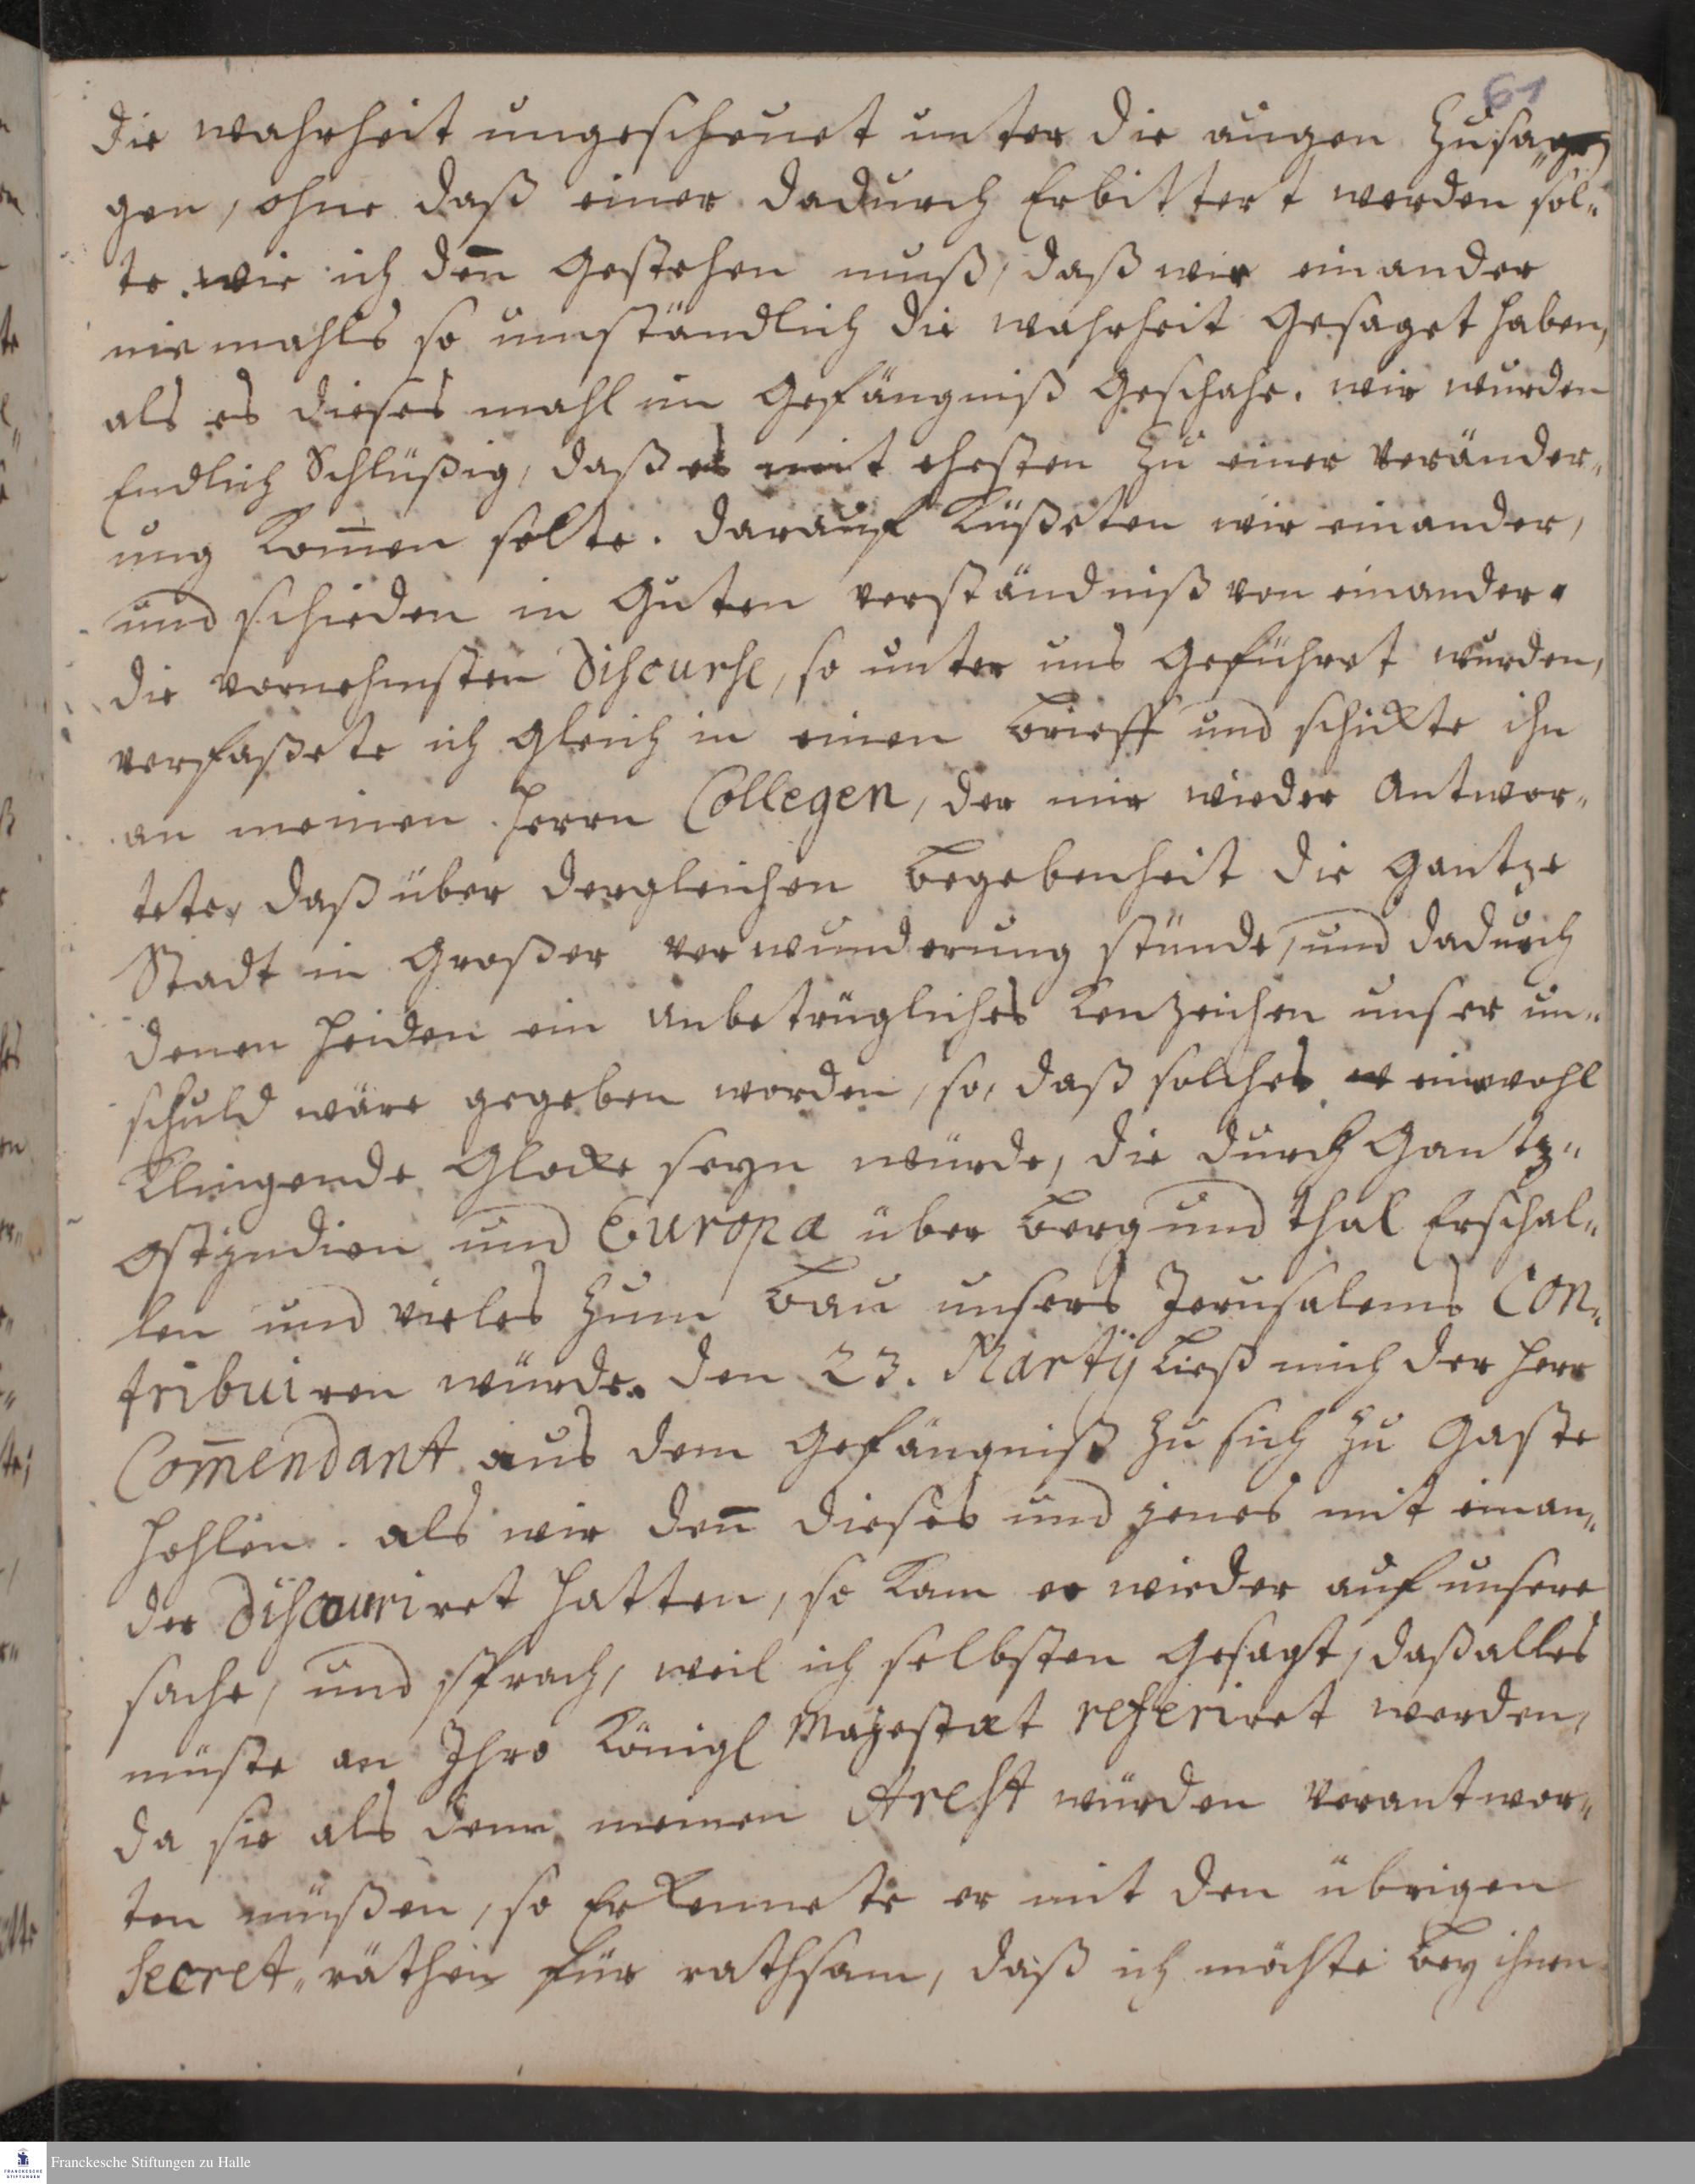 61
die wahrheit ungescheuet unter die augen zusa„
gen, ohne daß einer dadurch Erbittert werden sol„
te. wie ich den̄ Gestehen muß, daß wir einander
niemahls so umständlich die wahrheit Gesaget haben,
als es dieses mahl im Gefängniß Geschahe. wir wurden
Endlich Schlüßig, daß es mit ehesten zu einer Veränder„
ung kom̄en solte. darauf küßeten wir einander,
und schieden in Guten verständniß von einander.
die vornehmsten Discurse, so unter uns Geführet wurden,
verfaßete ich Gleich in einen Brieff und schickte ihn
an meinen Herrn Collegen, der mir wieder Antwor„
tete, daß über dergleichen Begebenheit die Gantze
Stadt in Großer verwunderung stünde, und dadurch
denen Heiden ein unbetrügliches Kenzeichen unser un„
schuld wäre gegeben worden, so, daß solches einwohl
Klingende Glocke seyn würde, die durch Gantz„
Ostjndien und Europa über Berg und thal Erschal„
len und vieles zum Bau unsers Jerusalems Con„
tribuiren würde. den 23. Martÿ Ließ mich der Herr
Com̄endant aus dem Gefängniß zu sich zu Gaste
Hohlen. als wir den̄ dieses und jenes mit einan„
der Discouriret hatten, so kam er wieder auf unsere
sache, und sprach, weil ich selbsten Gesagt, daß alles
müste an Ihro Königl Majestæt referiret werden,
da sie als denn meinen Arest würden verantwor„
ten müßen, so Erkennete er mit den übrigen
Secret„räthen für rathsam, daß ich möchte bey ihnen
Franckesche Stiftungen zu Halle